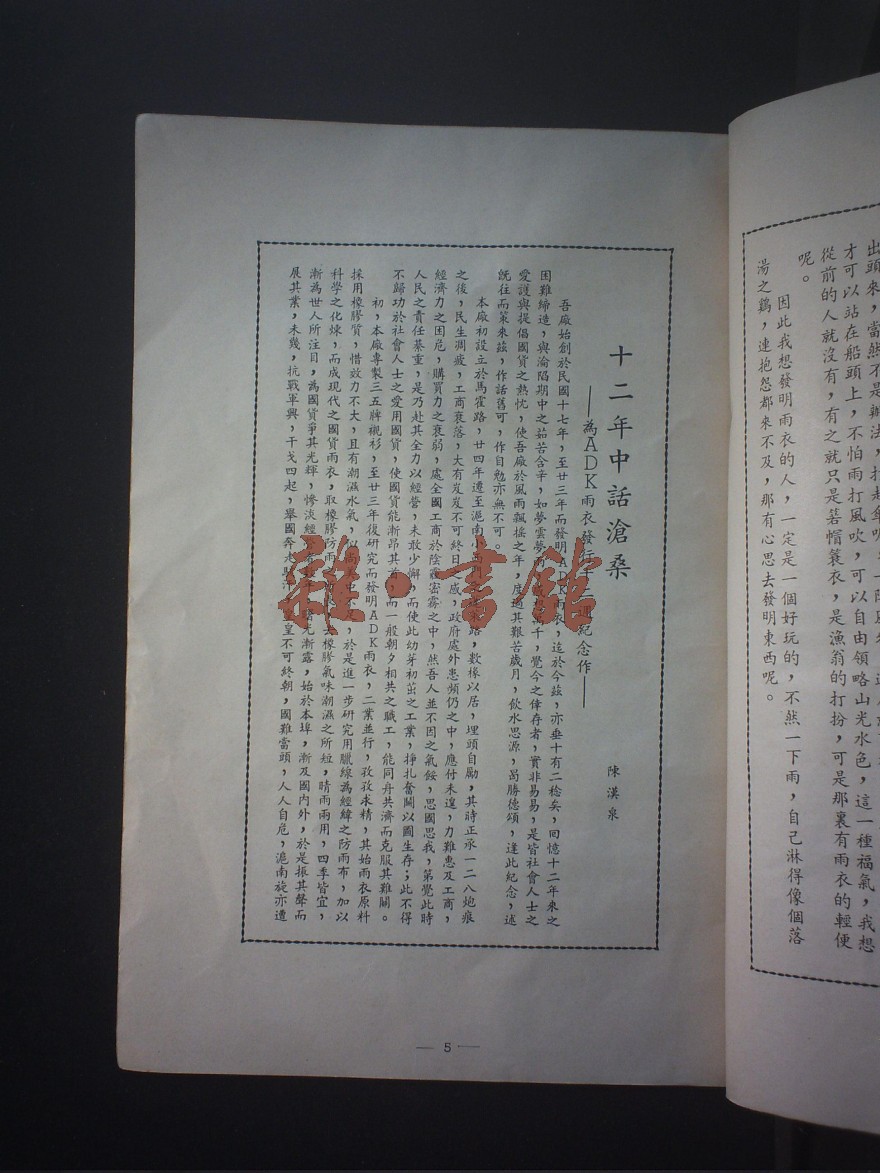 出頭來,當然不是辦法,打起傘
才可以站在船頭上,不怕雨打風吹,可以自由領略山光水色,這一種福氣,我想
從前的人就沒有,有之就只是箬帽簑衣,是漁翁的打扮,可是那裏有雨衣的輕便
呢。
因此我想發明雨衣的人,一定是一個好玩的,不然一下雨,自己淋得像個落
湯之鷄,連抱怨都來不及,那有心思去發明東西呢。
十二年中話滄桑
——為ADK雨衣發行十二週紀念作——
陳漢泉
吾廠始創於民國十七年,至廿三年而發明ADK雨衣,迄於今茲,亦垂十有二稔矣,回憶十二年來之
困難締造,與淪陷期中之茹苦含辛,如夢雲夢千,覺今之倖存者,實非易易,是皆社會人士之
愛護與提倡國貨之熱忱,使吾廠於風雨飄搖之年,度過其艱苦歲月,飲水思源,曷勝德頌,逢此紀念,述
既往而策來茲,作話舊可,作自勉亦無不可。
本廠初設立於馬霍路,廿四年遷至滬南路,數椽以居,埋頭自勵,其時正承一二八炮痕
之後,民生凋疲,工商衰落,大有岌岌不可終日之感,政府處外患頻仍之中,應付未遑,力難惠及工商,
經濟力之困危,購買力之衰弱,處全國工商於陰霾密霧之中,然吾人並不因之氣餒,思國思我,第覺此時
人民之責任綦重,是乃赴其全力以經營,未敢少懈,而使此幼芽初茁之工業,掙扎奮鬭以圖生存;此不得
不歸功於社會人士之愛用國貨,使國貨能漸昂其首,而一般朝夕相共之職工,能同舟共濟而克服其難關。
初,本廠專製三五牌襯衫,至廿三年後研究而發明ADK雨衣,二業並行,孜孜求精,其始雨衣原料
採用橡膠質,惜效力不大,且有潮濕水氣,以,於是進一步研究用臘線為經緯之防雨布,加以
科學之化煉,而成現代之國貨雨衣,取橡膠防雨橡膠氣味潮濕之所短,晴雨兩用,四季皆宜,
漸為世人所注目,為國貨爭其光輝,慘淡經營光漸露,始於本埠,漸及國內外,於是振其聲而
展其業,未幾,抗戰軍興,干戈四起,舉國奔走皇不可終朝,國難當頭,人人自危,滬南旋亦遭
— 5 —
雜·書館